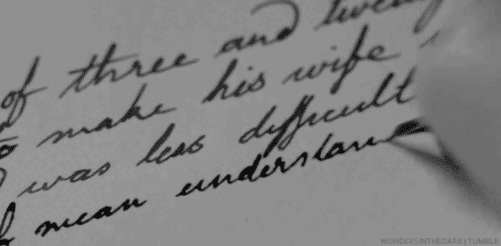 of three and twenty
to make his wife
was less difficult
of mean understan
WONDERSINTHEDARK | TUMBLR